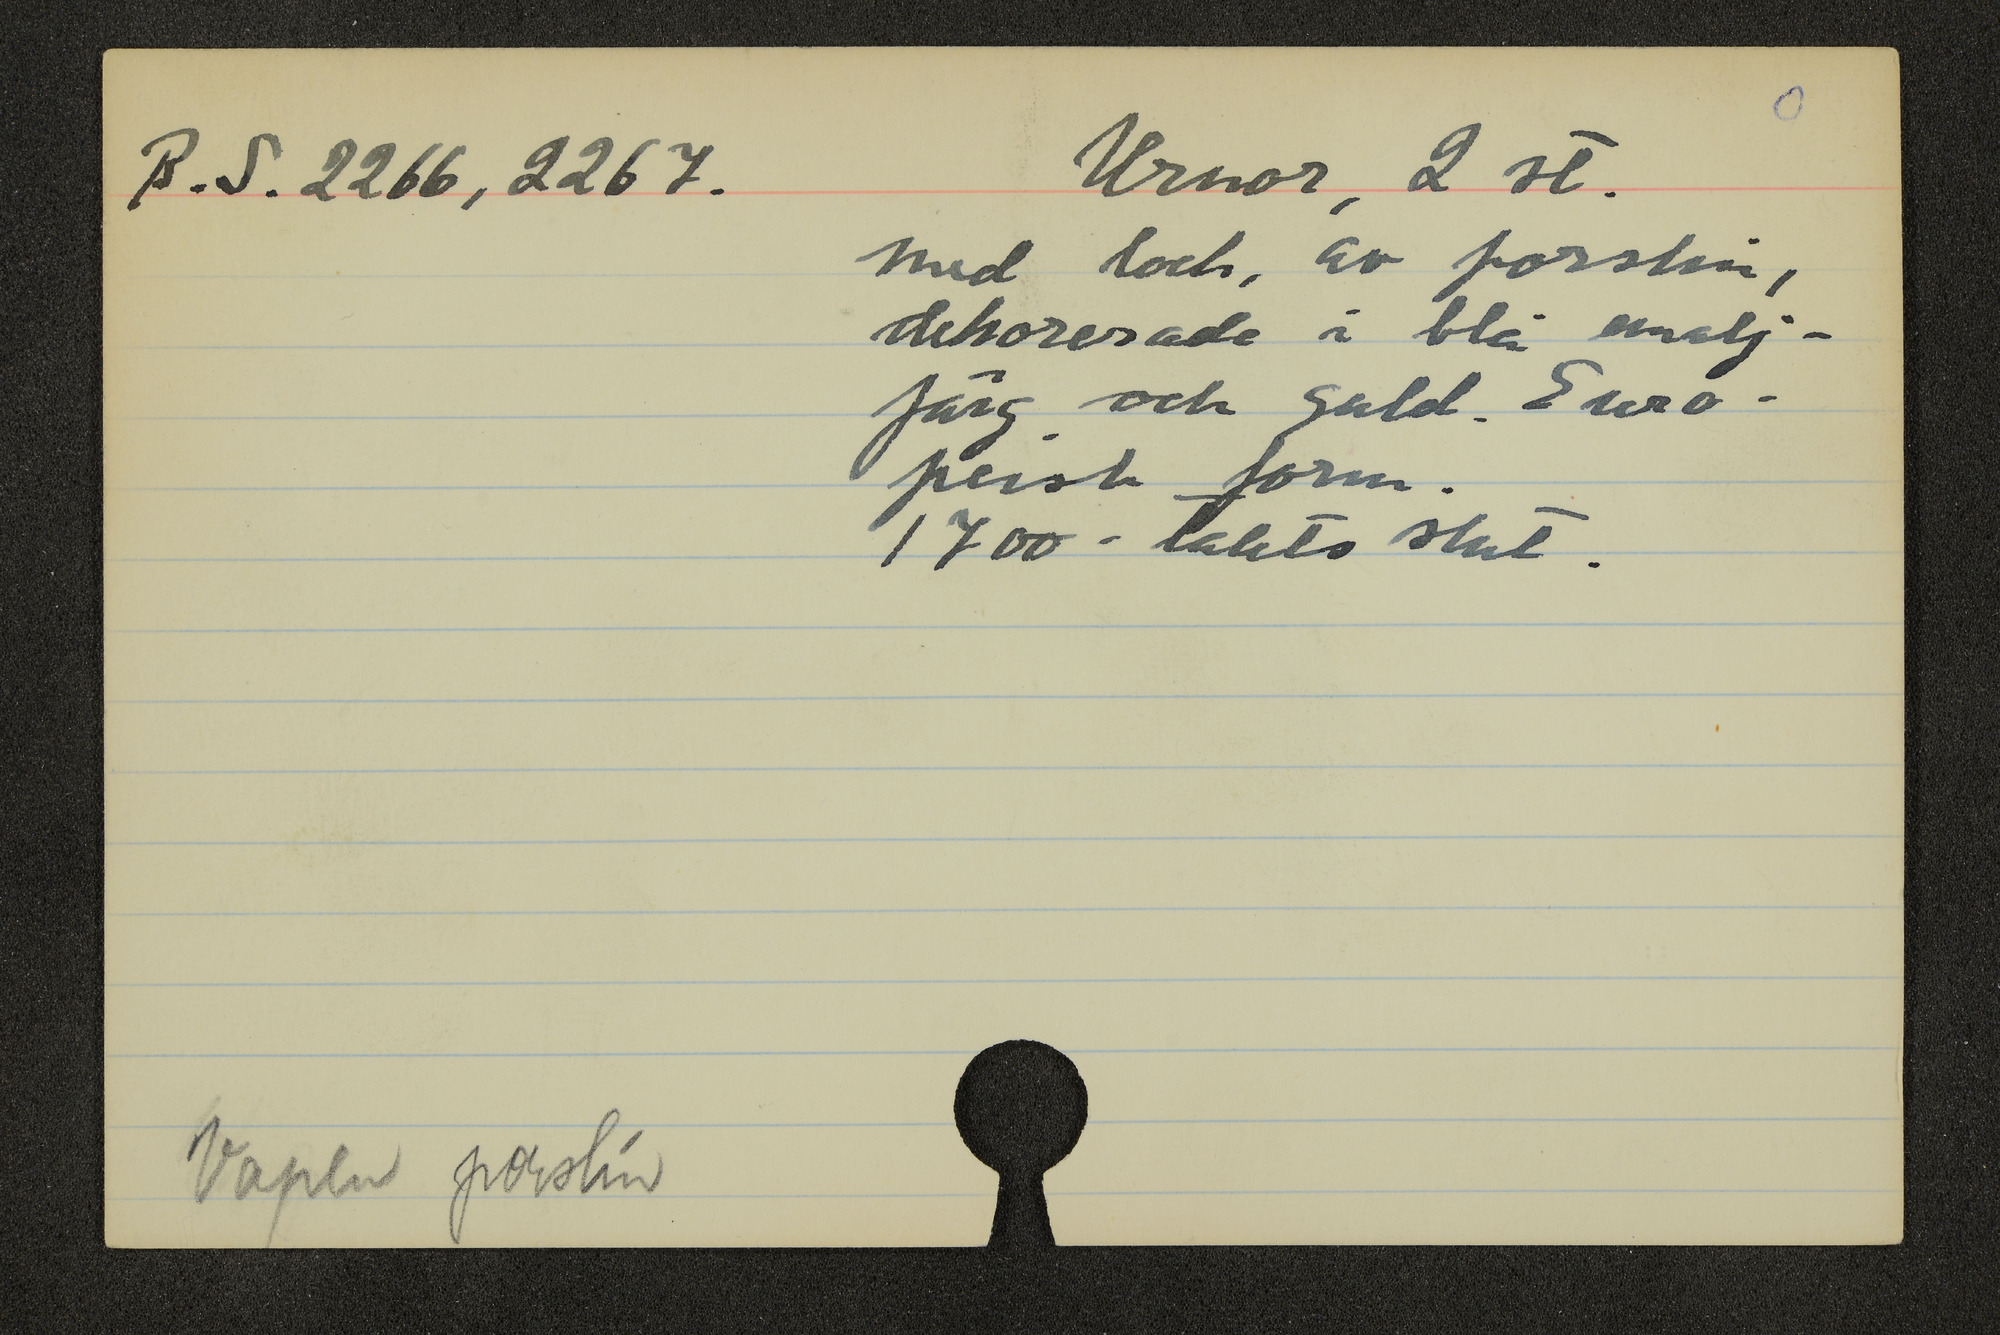 O
B.S. 2266, 2267.
Urnor, 2 st.
med lock, av porslin,
dekorerade i blå emalj-
färg och guld. Euro-
peisk form.
1700-talets slut.
Vapen porslin